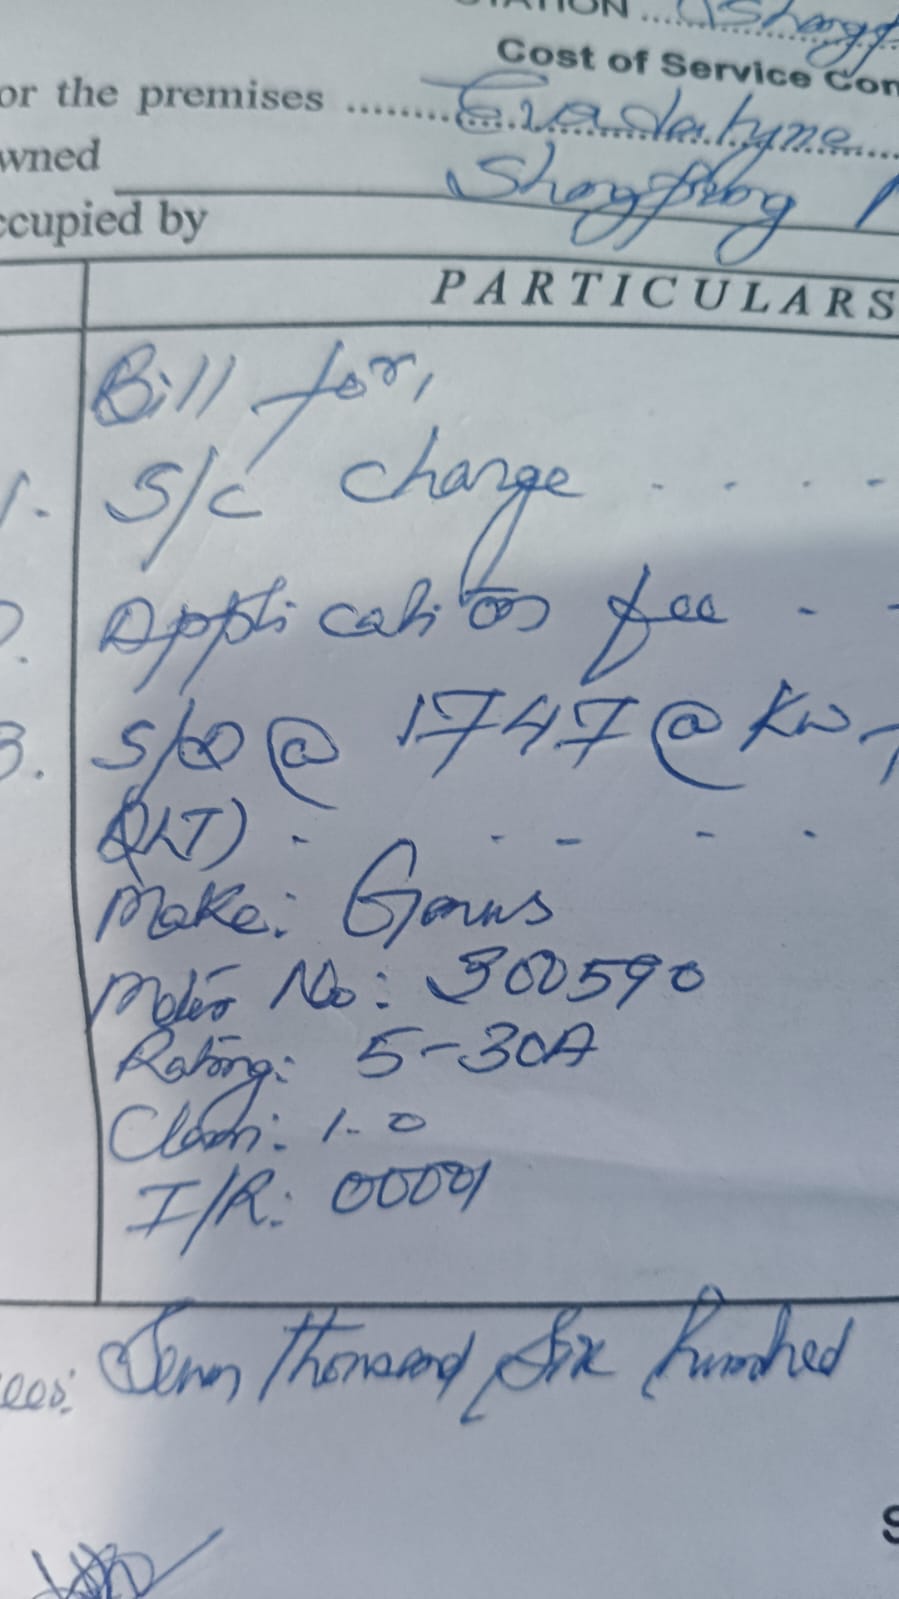 Cost of Service Con
or the premises ........ Evadalyne
wned
Shongpliang
ccupied by
PARTICULARS
Bill for,
1. S/C Charge - - - -
2. Application fee - -
3. S/D @ 1747 @ Kw
(LT) - - - - -
Make: Genus
Meter No: 300590
Rating: 5-30A
Class: 1.0
I/R: 00001
ees: Seven Thousand Six hundred